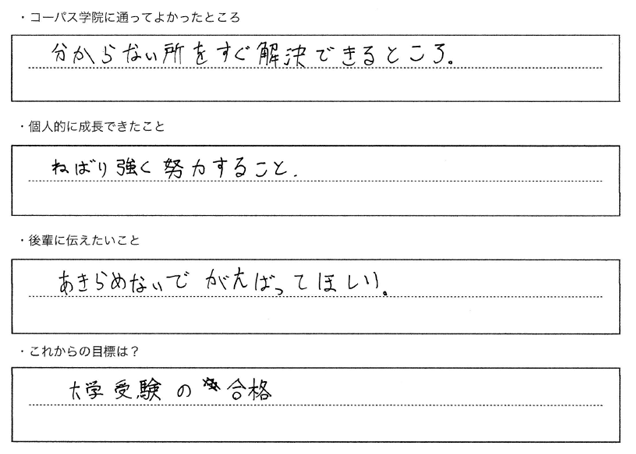 ・コーパス学院に通ってよかったところ
分からない所をすぐ解決できるところ。
・個人的に成長できたこと
ねばり強く努力すること.
・後輩に伝えたいこと
あきらめないでがんばってほしい。
・これからの目標は？
大学受験の合格